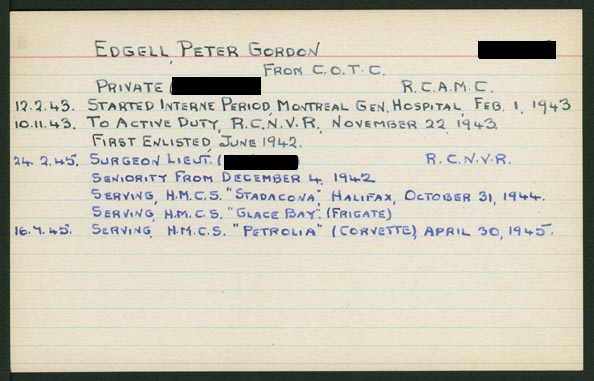 EDGELL, PETER GORDON
FROM C.O.T.C.
PRIVATE ( R.C.A.M.C.
12.2.43. STARTED INTERNE PERIOD, MONTREAL GEN. HOSPITAL, FEB. 1, 1943
10.11.43. TO ACTIVE DUTY, R.C.N.V.R., NOVEMBER 22, 1943.
FIRST ENLISTED, JUNE 1942.
24.2.45. SURGEON LIEUT. ( R.C.N.V.R.
SENIORITY FROM DECEMBER 4, 1942
SERVING, H.M.C.S. "STADACONA", HALIFAX, OCTOBER 31, 1944.
SERVING, H.M.C.S. "GLACE BAY". (FRIGATE)
16.7.45. SERVING, H.M.C.S. "PETROLIA" (CORVETTE), APRIL 30, 1945.